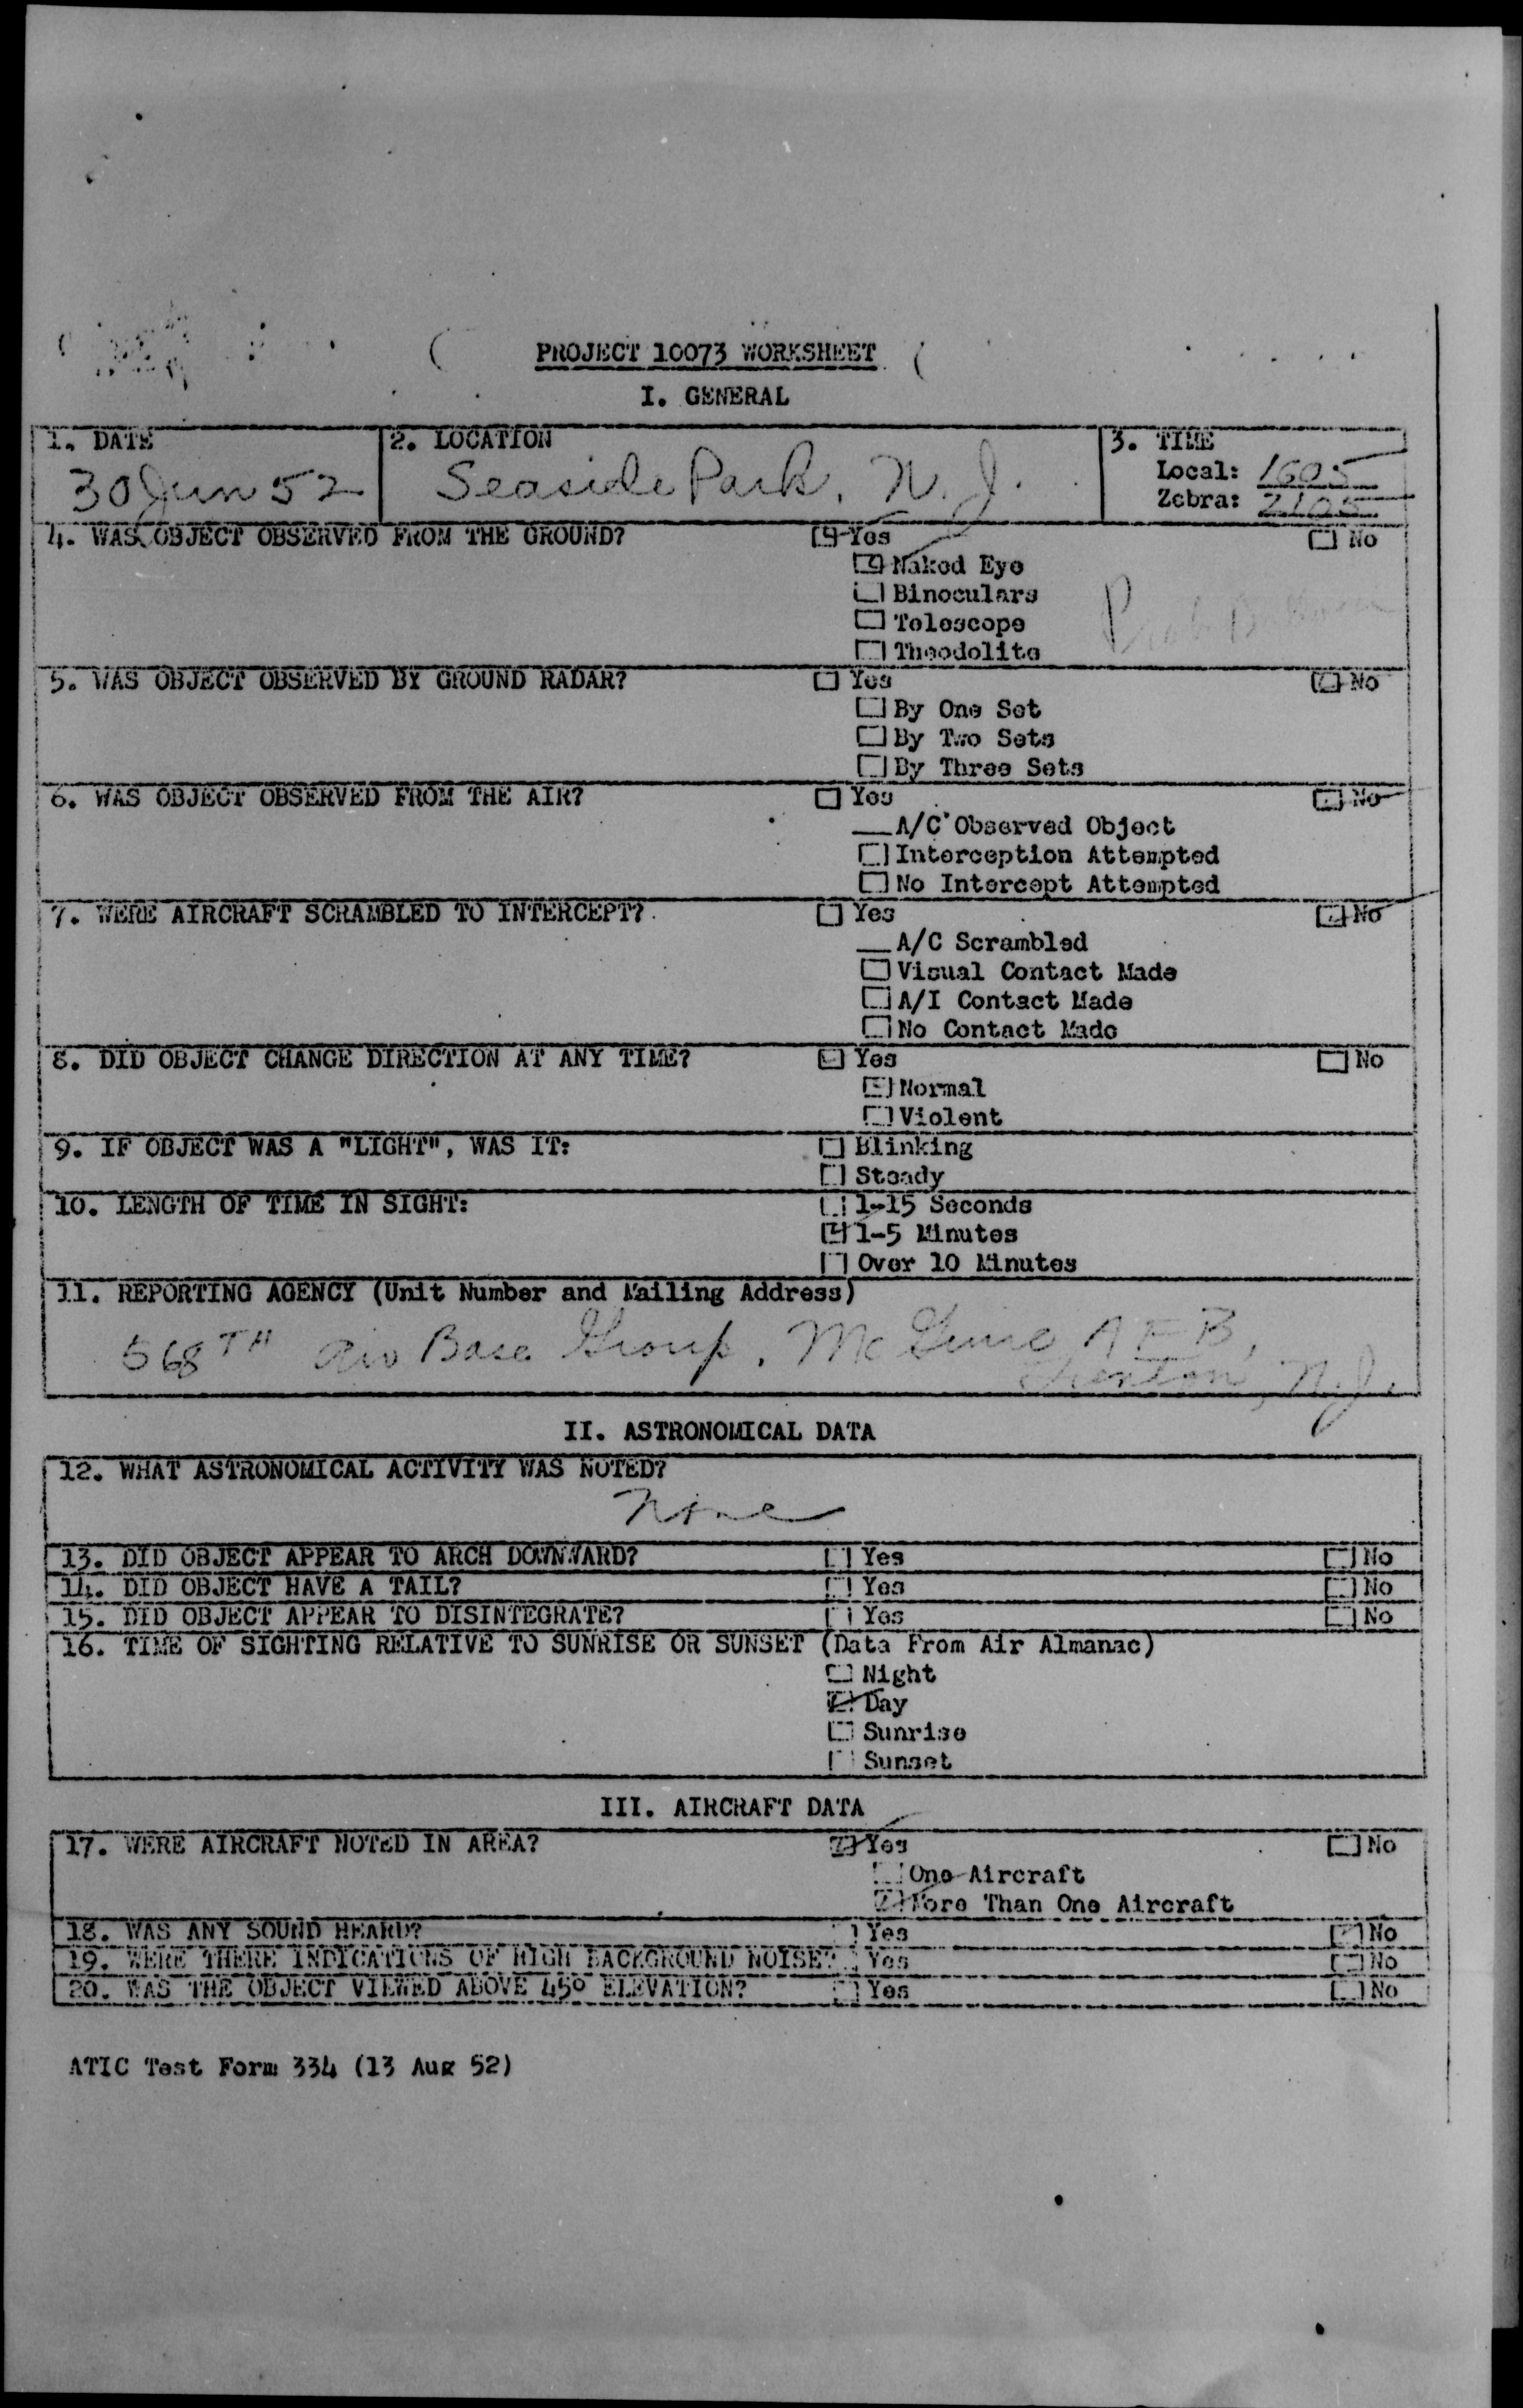 PROJECT 10073 WORKSHEET
I. GENERAL
1. DATE
30 Jun 52
2. LOCATION
Seaside Park, N.J.
3. TIME
Local: 1605
Zebra: 2105
4. WAS OBJECT OBSERVED FROM THE GROUND?
Yes
No
Naked Eye
Binoculars
Telescope
Theodolite
5. WAS OBJECT OBSERVED BY GROUND RADAR?
Yes
No
By One Set
By Two Sets
By Three Sets
6. WAS OBJECT OBSERVED FROM THE AIR?
Yes
No
A/C Observed Object
Interception Attempted
No Intercept Attempted
7. WERE AIRCRAFT SCRAMBLED TO INTERCEPT?
Yes
No
A/C Scrambled
Visual Contact Made
A/I Contact Made
No Contact Made
8. DID OBJECT CHANGE DIRECTION AT ANY TIME?
Yes
No
Normal
Violent
9. IF OBJECT WAS A "LIGHT", WAS IT:
Blinking
Steady
10. LENGTH OF TIME IN SIGHT:
1-15 Seconds
1-5 Minutes
Over 10 Minutes
11. REPORTING AGENCY (Unit Number and Mailing Address)
568TH Air Base Group, McGuire AFB,
Trenton, N.J.
II. ASTRONOMICAL DATA
12. WHAT ASTRONOMICAL ACTIVITY WAS NOTED?
None
13. DID OBJECT APPEAR TO ARCH DOWNWARD? Yes No
14. DID OBJECT HAVE A TAIL? Yes No
15. DID OBJECT APPEAR TO DISINTEGRATE? Yes No
16. TIME OF SIGHTING RELATIVE TO SUNRISE OR SUNSET (Data From Air Almanac)
Night
Day
Sunrise
Sunset
III. AIRCRAFT DATA
17. WERE AIRCRAFT NOTED IN AREA? Yes No
One Aircraft
More Than One Aircraft
18. WAS ANY SOUND HEARD? Yes No
19. WERE THERE INDICATIONS OF HIGH BACKGROUND NOISE? Yes No
20. WAS THE OBJECT VIEWED ABOVE 45° ELEVATION? Yes No
ATIC Test Form 334 (13 Aug 52)